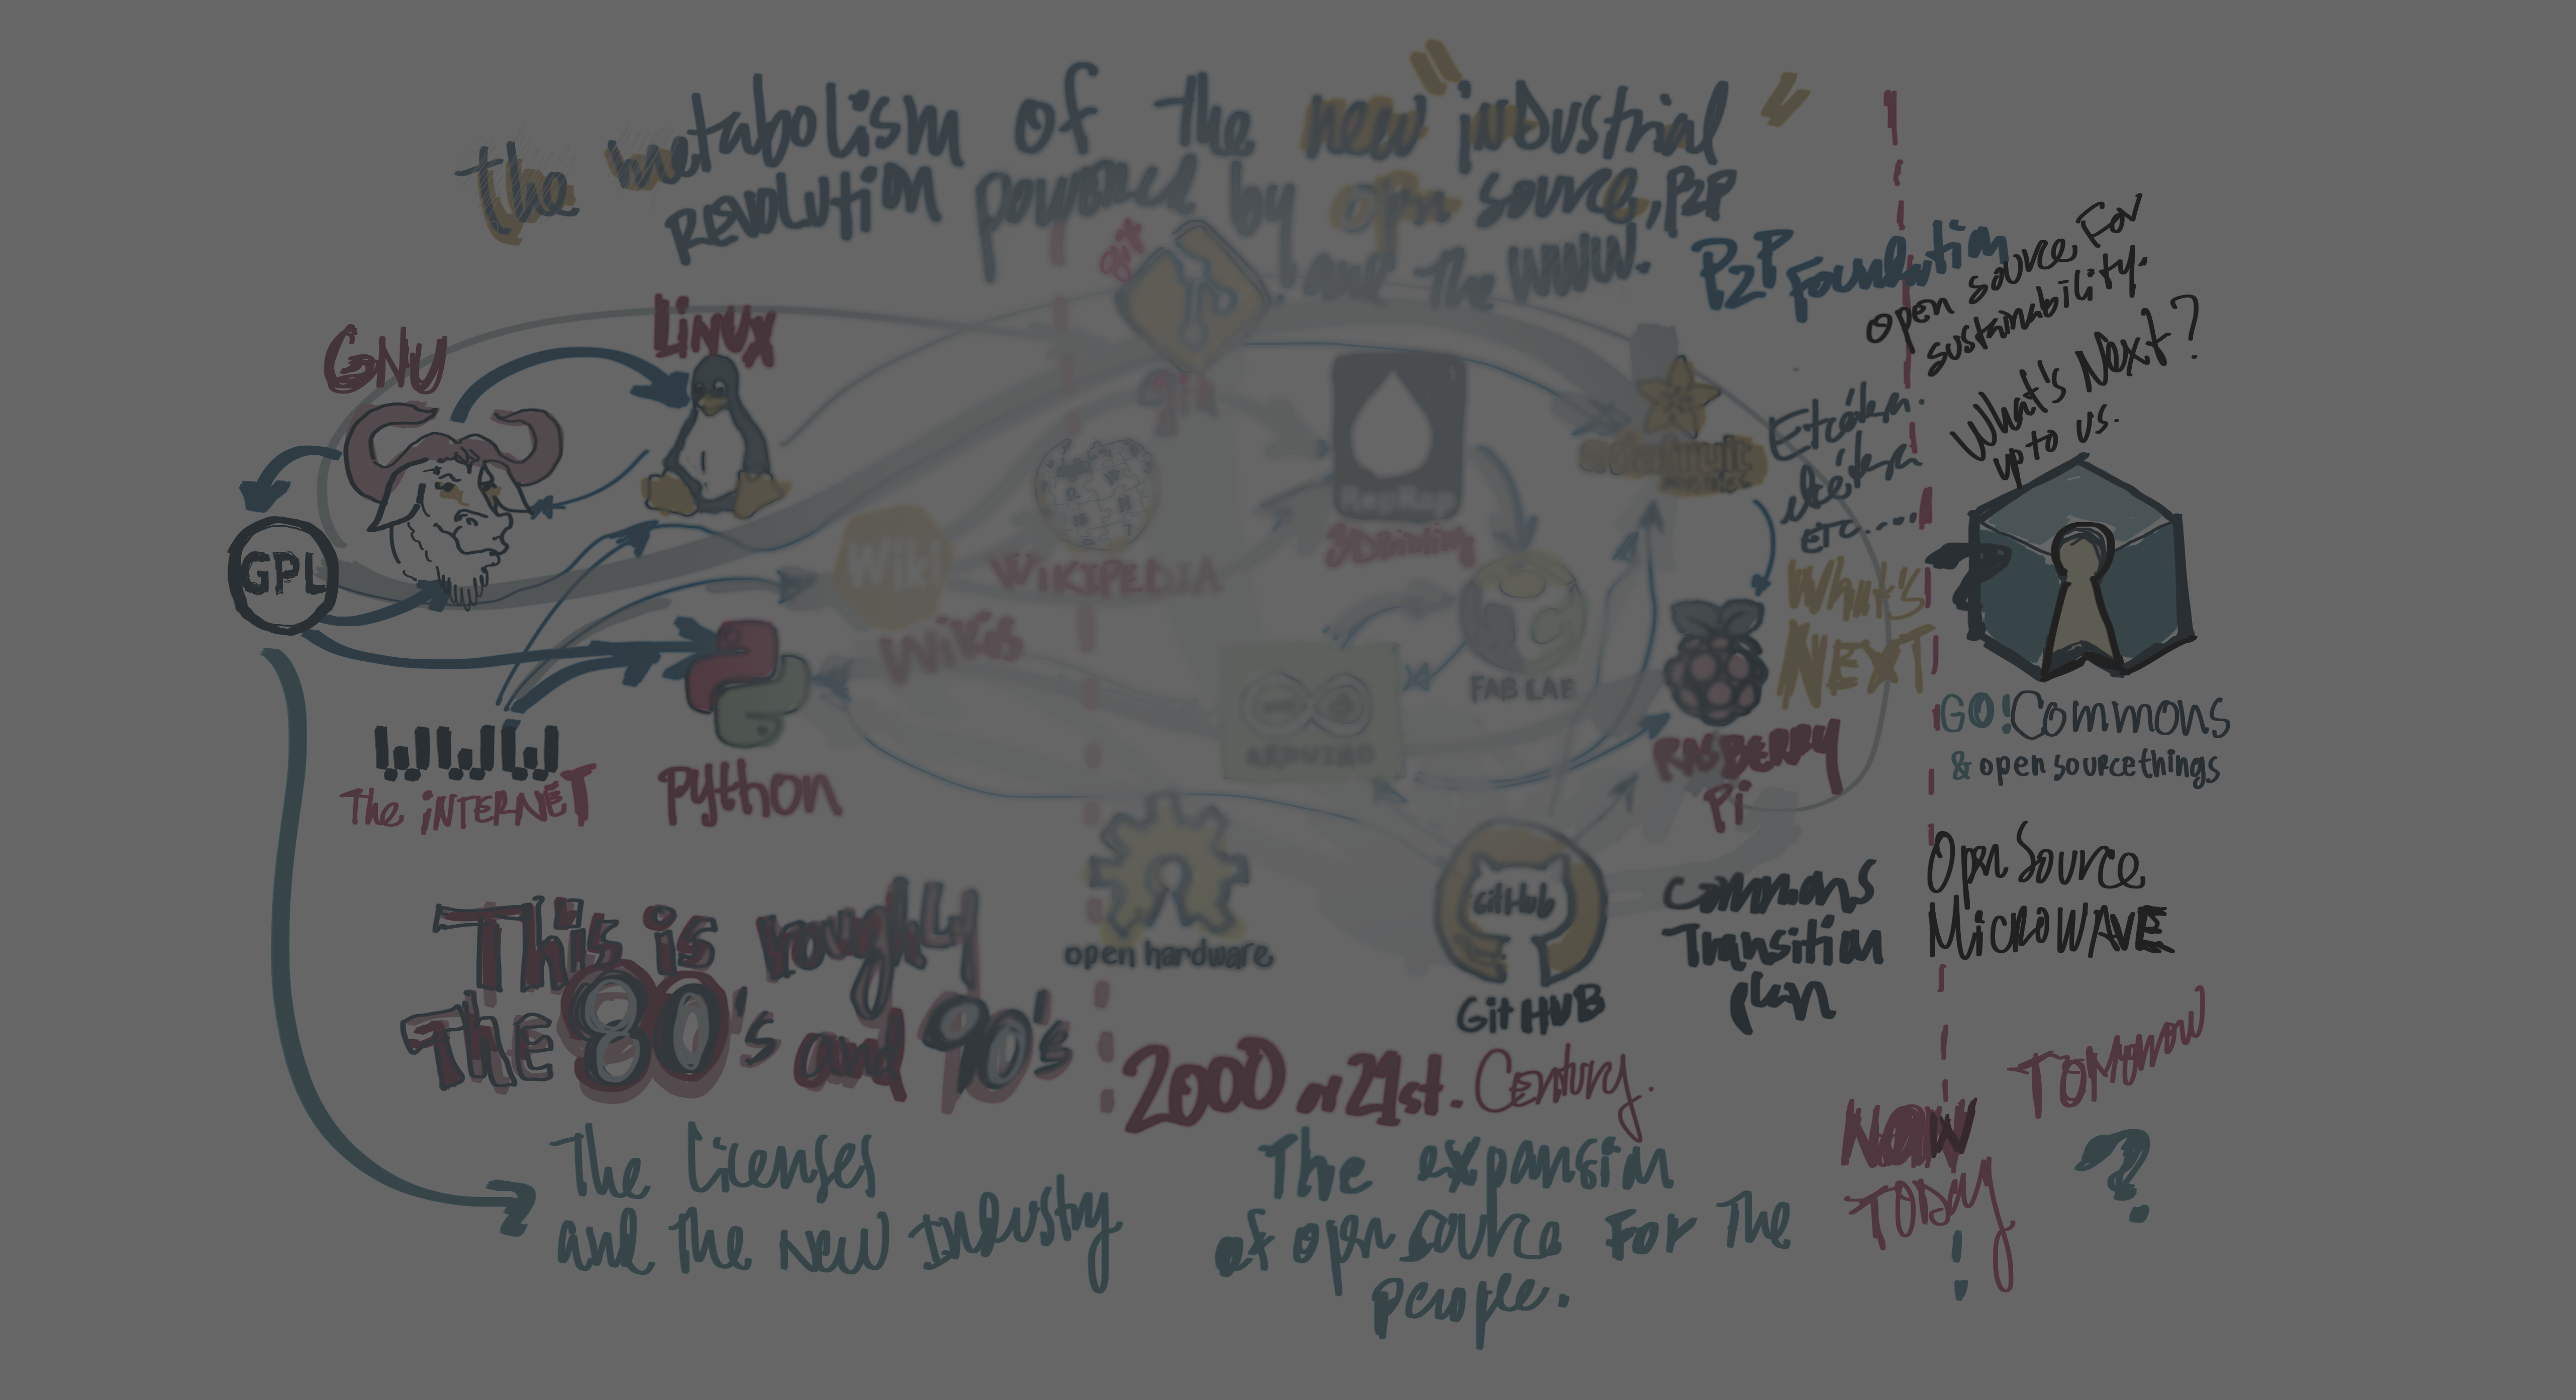 the metabolism of the new "industrial"
Revolution powered by open source, P2P
and the WWW.
P2P Foundation
open source For
sustainability.
What's Next?
up to us.
GNU
LiNUX
git
git
GPL
Wiki
Wikis
WiKiPEDIA
RepRap
3D Printing
adafruit
Etcétera
etcétera
etc....
What's
NEXT
FAB LAB
ARDUINO
WWW
The iNTERNET
Python
RASBERRY
Pi
GO! Commons
& open source things
open hardware
GitHub
GitHUB
Commons
Transition
plan
Open Source
MicroWAVE
This is roughly
The 80's and 90's
2000 or 21st. Century.
NOW
TODAY
!
TOMorrow
?
The Licenses
and the New Industry
The expansion
of open source For The
people.